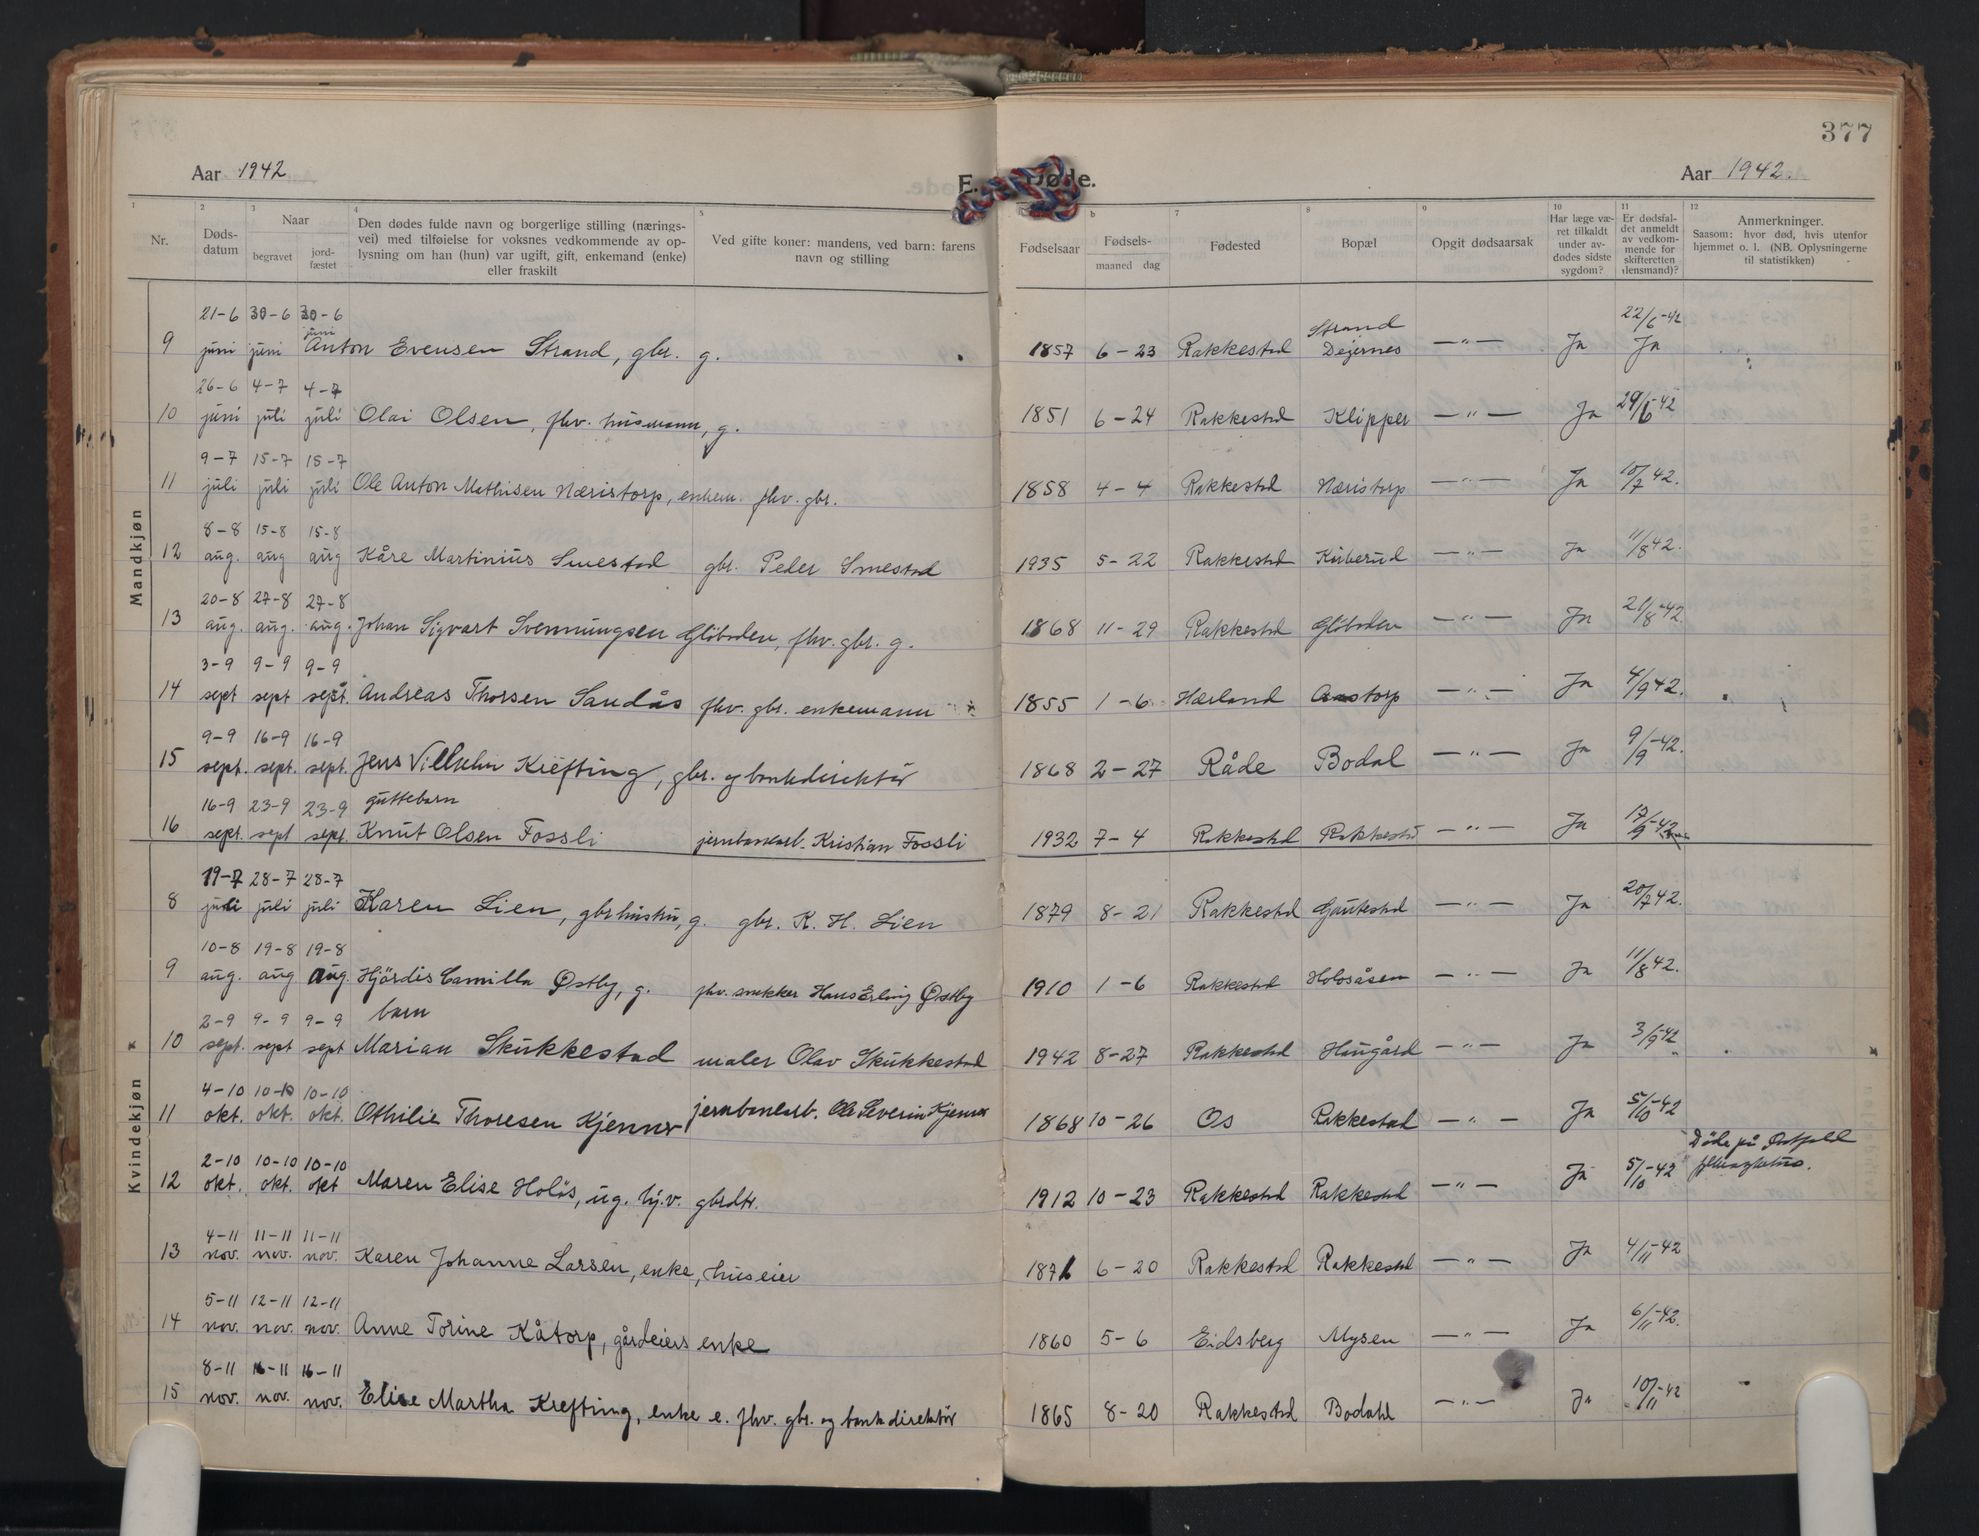 377
Aar 1942
E. Døde.
Aar 1942.
1 2 3 4 5 b 7 8 9 10 11 12
Nr.
Døds-
datum
Naar
begravet
jord-
fæstet
Den dødes fulde navn og borgerlige stilling (nærings-
vei) med tilføielse for voksnes vedkommende av op-
lysning om han (hun) var ugift, gift, enkemand (enke)
eller fraskilt
Ved gifte koner: mandens, ved barn: farens
navn og stilling
Fødselsaar
Fødsels-
maaned dag
Fødested
Bopæl
Opgit dødsaarsak
Har læge væ-
ret tilkaldt
under av-
dødes sidste
sygdom?
Er dødsfal-
det anmeldt
av vedkom-
mende for
skifteretten
(lensmand)?
Anmerkninger.
Saasom: hvor død, hvis utenfor
hjemmet o. l. (NB. Oplysningerne
til statistikken)
Mandkjøn
21-6 30-6 30-6 22/6-42
juni Strand
9 juni juni Anton Evensen Strand, gbr. g. 1857 6-23 Rakkestad Dejernes — " — Ja Ja
26-6 4-7 4-7
10 juni juli juli Olai Olsen, fhv. husmann, g. 1851 6-24 Rakkestd Klipper — " — Ja 29/6-42
9-7 15-7 15-7
11 juli juli juli Ole Anton Mathisen Næristorp, enkem. fhv. gbr. 1858 4-4 Rakkestd Næristorp — " — Ja 10/7 42.
8-8 15-8 15-8
12 aug. aug aug Kåre Martinius Smestad gbr. Peder Smestad 1935 5-22 Rakkestd Kuberud — " — Ja 11/8 42.
20-8 27-8 27-8
13 aug. aug. aug. Johan Sigvart Svenningsen Glöboden, fhv. gbr. g. 1868 11-29 Rakkestd Glöboden — " — Ja 21/8-42.
3-9 9-9 9-9
14 sept sept sept. Andreas Thorsen Sandås fhv. gbr. enkemann 1855 1-6 Hærland Aastorp — " — Ja 4/9 42.
9-9 16-9 16-9
15 sept. sept. sept. Jens Vilhelm Krefting, gbr. og bankdirektör 1868 2-27 Råde Bodal — " — Ja 9/9-42.
16-9 23-9 23-9 guttebarn
16 sept. sept sept. Knut Olsen Fossli jernbanearb. Kristian Fossli 1932 7-4 Rakkestd Rakkestd — " — Ja 17/9-42
Kvindekjøn
19-7 28-7 28-7
8 juli juli juli Karen Lien, gbrhustru, g. gbr. K. H. Lien 1879 8-21 Rakkestd Gautestd — " — Ja 20/7 42.
10-8 19-8 19-8
9 aug. aug aug. Hjördis Camilla Østby, g. fhv. snekker Hans Erling Østby 1910 1-6 Rakkestd Holosåsen — " — Ja 11/8 42.
2-9 9-9 9-9 barn
10 sept. sept sept Marian Skukkestad maler Olav Skukkestad 1942 8-27 Rakkestd Haugård — " — Ja 3/9-42
4-10 10-10 10-10
11 okt. okt. okt. Othilie Thoresen Kjenner jernbanearb. Ole Severin Kjenner 1868 10-26 Os Rakkestad — " — Ja 5/10-42
2-10 10-10 10-10 Döde på Østfold
12 okt. okt. okt Maren Elise Holös, ug. hj.v. gbrdtr. 1912 10-23 Rakkestd Rakkestd — " — Ja 5/10-42
4-11 11-11 11-11
13 nov. nov. nov. Karen Johanne Larsen, enke, huseier 1871 6-20 Rakkestd Rakkestd — " — Ja 4/11-42
5-11 12-11 12-11
14 nov. nov. nov. Anne Torine Kåtorp, gårdeiers enke 1860 5-6 Eidsberg Mysen — " — Ja 6/11-42.
8-11 16-11 16-11
15 nov. nov. nov. Elise Martha Krefting, enke e. fhv. gbr. og bankdirektör 1865 8-20 Rakkestd Bodahl — " — Ja 10/11-42